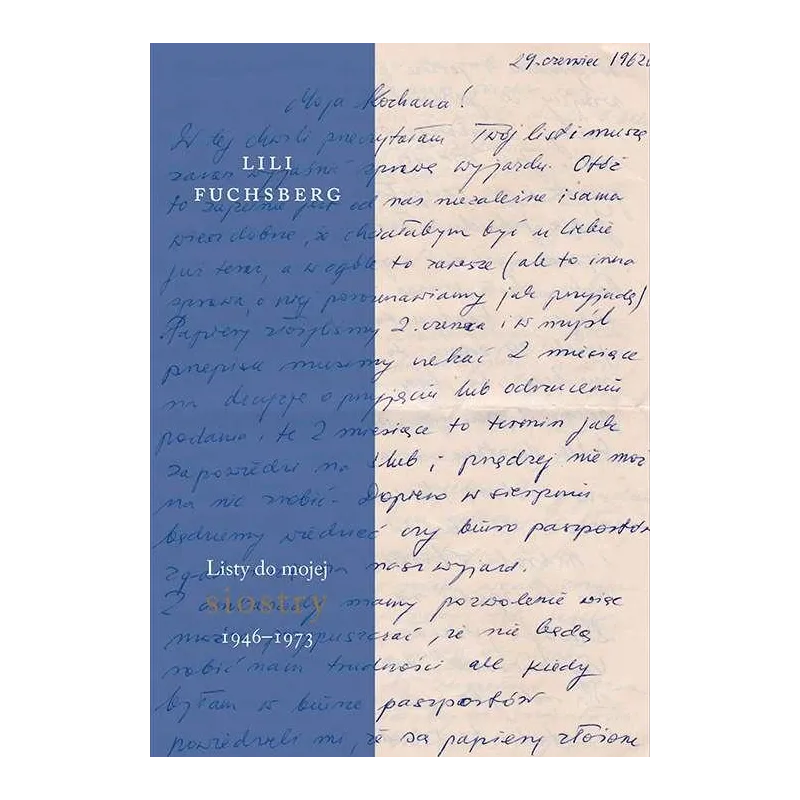 29. czerwiec 1962
Moja Kochana!
W tej chwili przeczytałam Twój list i muszę
zaraz wyjaśnić sprawę wyjazdu. Otóż
LILI
FUCHSBERG
to zupełnie jest od nas niezależne i sama
wiesz dobrze, że chciałabym być u Ciebie
już teraz, a w ogóle to zawsze (ale to inna
sprawa, o niej porozmawiamy jak przyjadę)
Papiery złożyliśmy 2. czerwca i w myśl
przepisu musimy czekać 2 miesiące
na decyzję o przyjęciu lub odrzuceniu
podania, te 2 miesiące to termin jak
zapowiedzi na ślub i prędzej nie moż
na nic zrobić. Dopiero w sierpniu
będziemy wiedzieć czy biuro paszportów
nasz wyjazd.
Listy do mojej
siostry
1946–1973
mamy pozwolenie więc
że nie będą
robić nam trudności ale kiedy
byłam w biurze paszportów
powiedzieli mi, że są papiery złożone